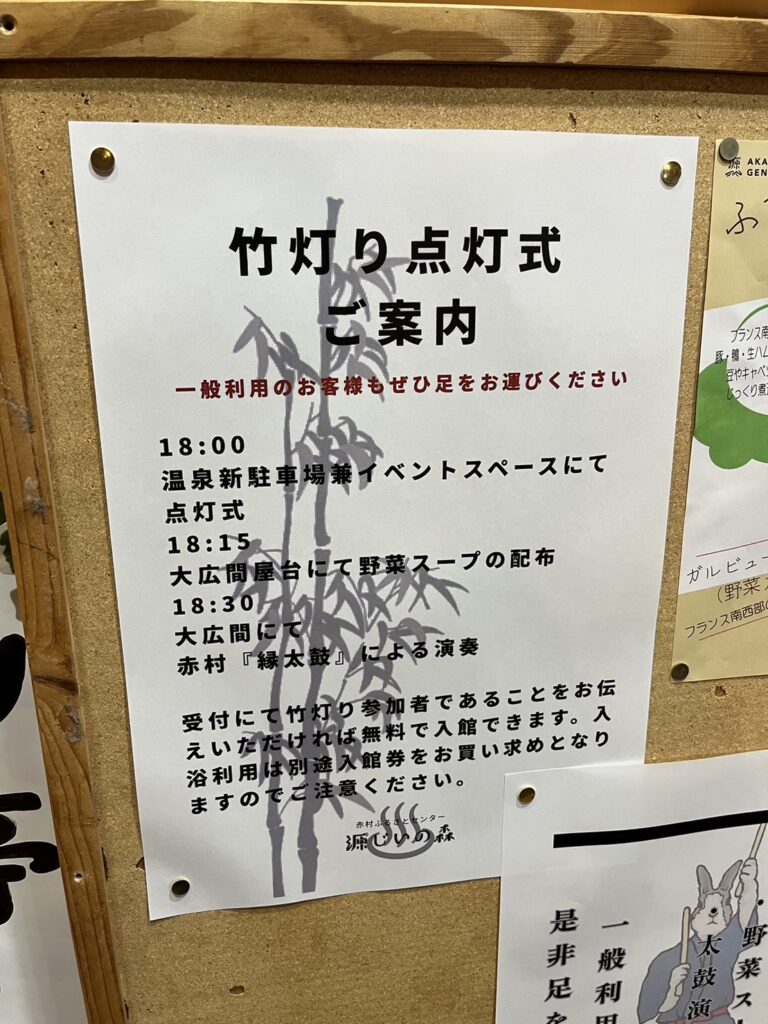 竹灯り点灯式
ご案内
一般利用のお客様もぜひ足をお運びください
18:00
温泉新駐車場兼イベントスペースにて
点灯式
18:15
大広間屋台にて野菜スープの配布
18:30
大広間にて
赤村『縁太鼓』による演奏
受付にて竹灯り参加者であることをお伝
えいただければ無料で入館できます。入
浴利用は別途入館券をお買い求めとなり
ますのでご注意ください。
赤村ふるさとセンター
源じいの森
源
AKA
GEN
ふ
フランス南
豚・鴨・生ハム
豆やキャベツ
じっくり煮込
ガルビュー
(野菜ス
フランス南西部の
・野菜ス
太鼓演
一般利用
是非足を